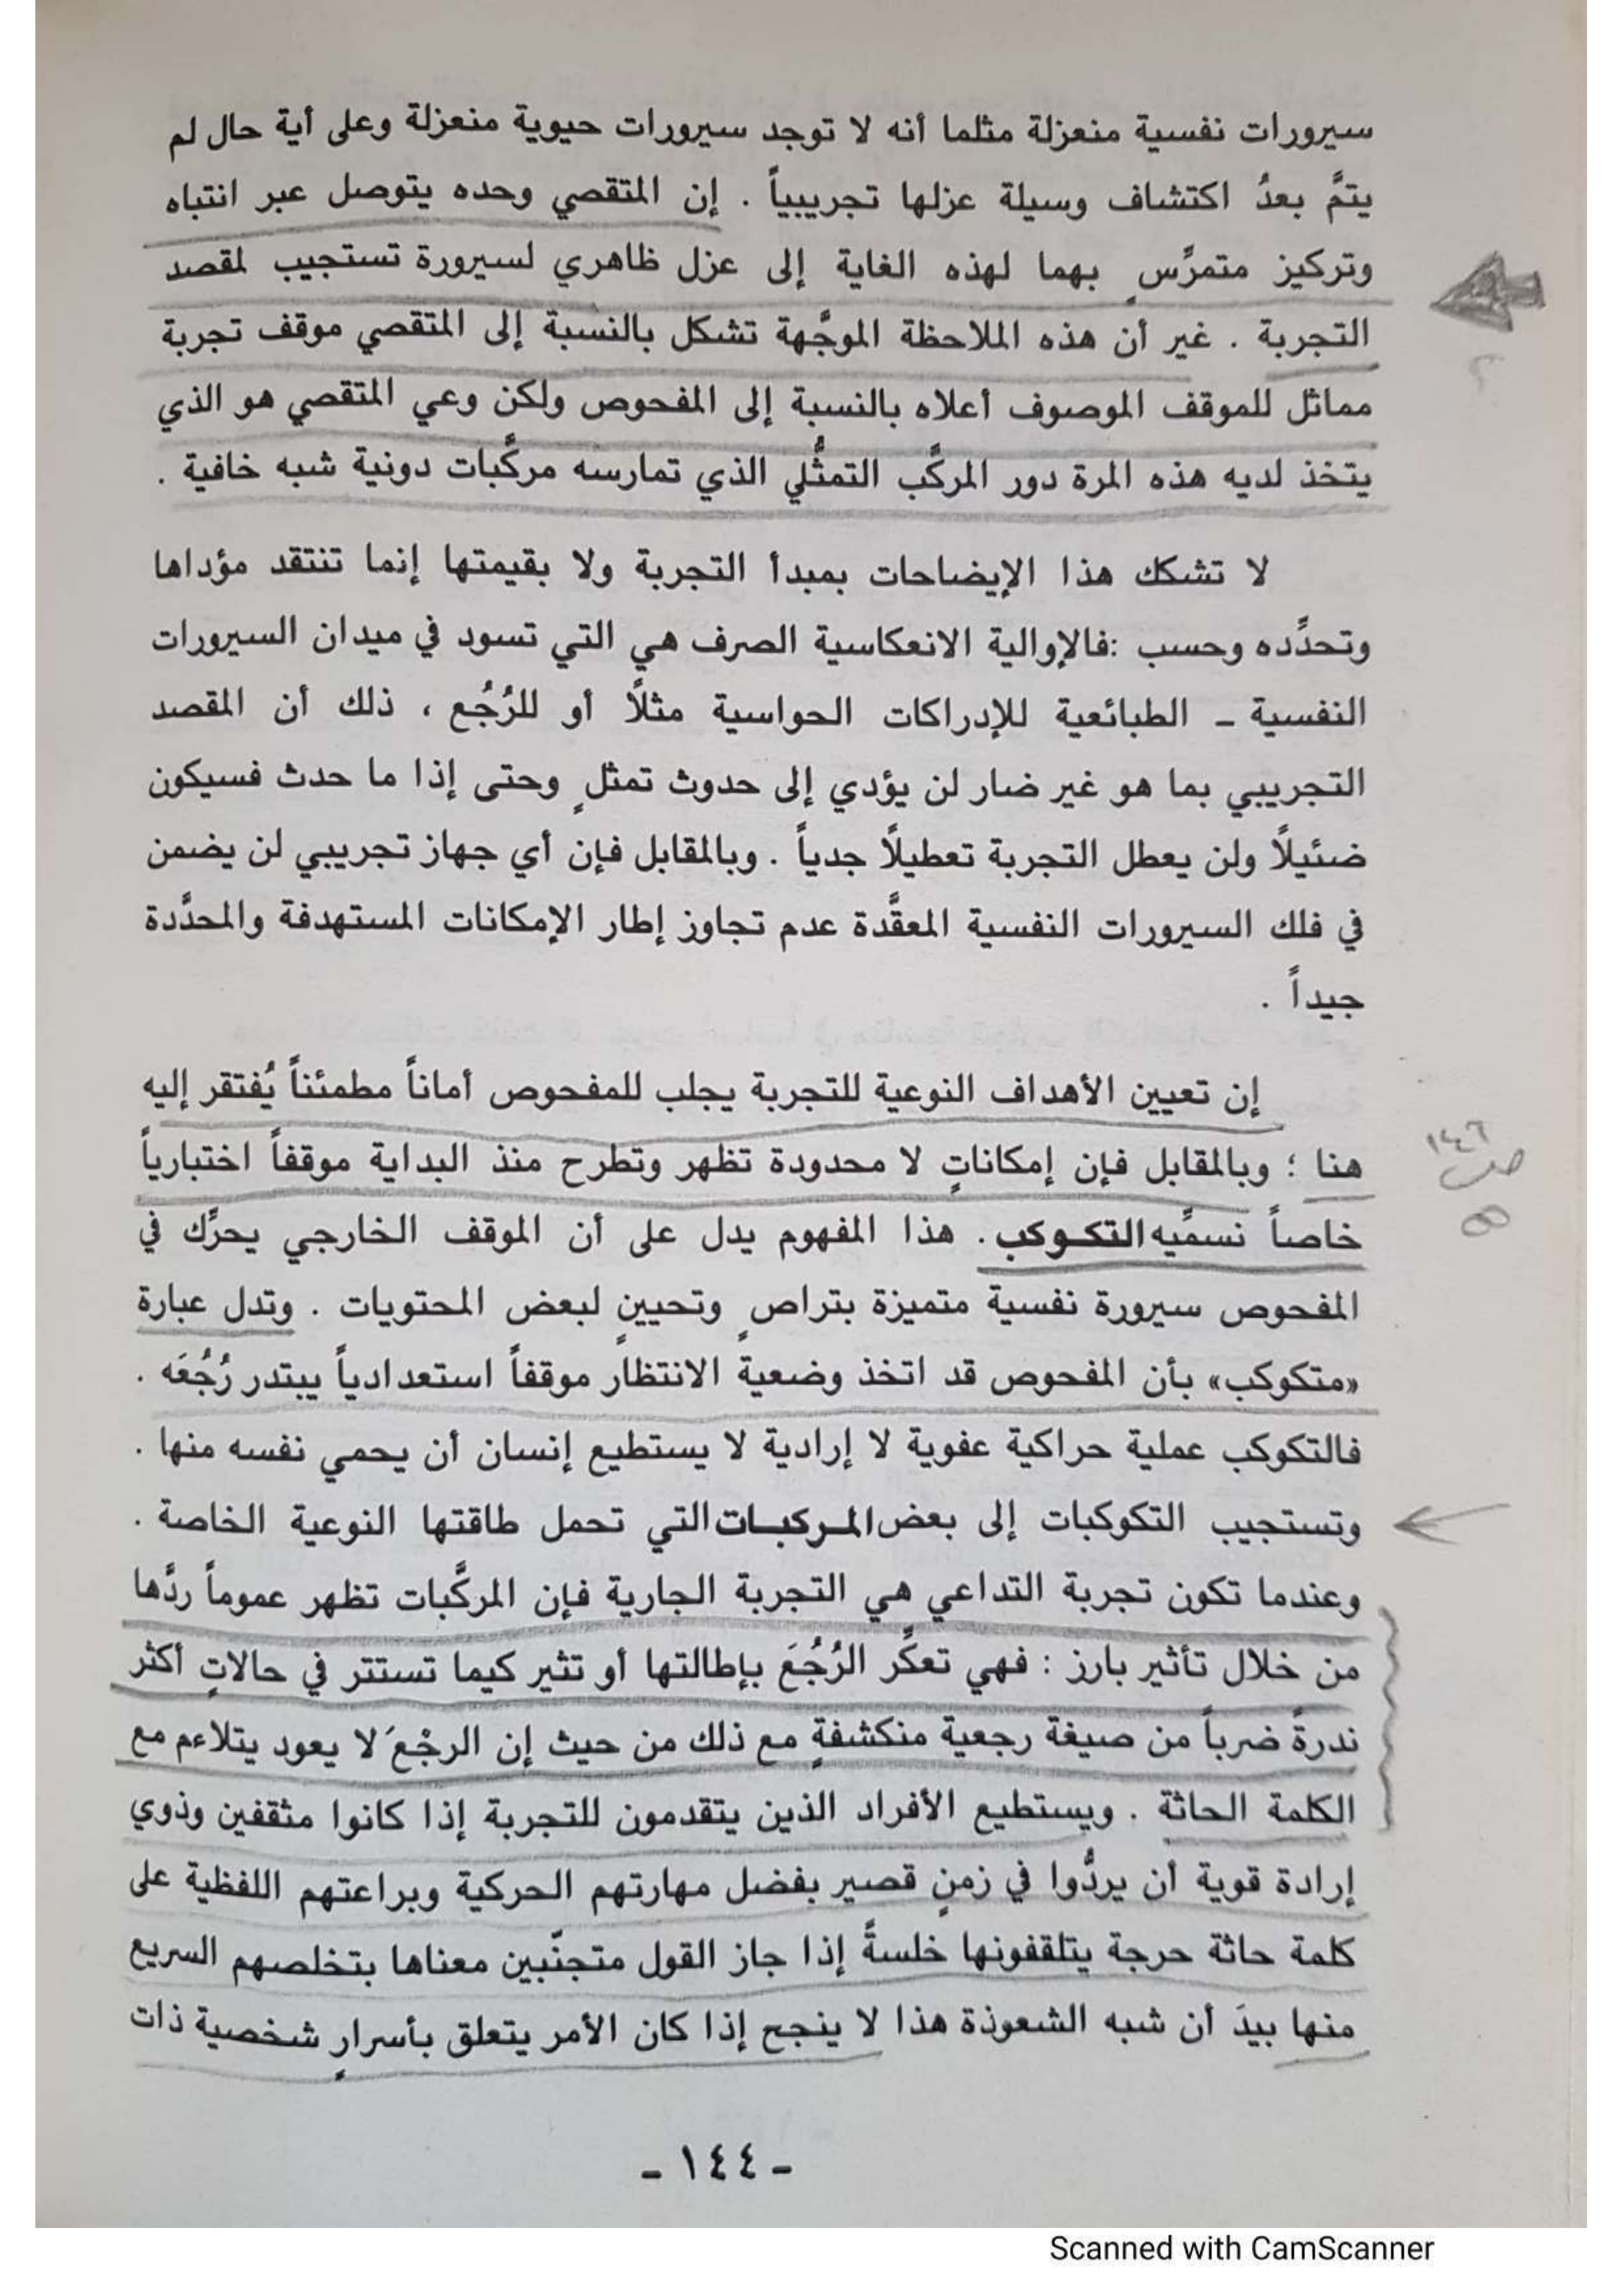 سيرورات نفسية منعزلة مثلما أنه لا توجد سيرورات حيوية منعزلة وعلى أية حال لم
يتمَّ بعدُ اكتشاف وسيلة عزلها تجريبياً . إن المتقصي وحده يتوصل عبر انتباه
وتركيز متمرَّسٍ بهما لهذه الغاية إلى عزل ظاهري لسيرورة تستجيب لمقصد
التجربة . غير أن هذه الملاحظة الموجَّهة تشكل بالنسبة إلى المتقصي موقف تجربة
مماثل للموقف الموصوف أعلاه بالنسبة إلى المفحوص ولكن وعي المتقصي هو الذي
يتخذ لديه هذه المرة دور المركَّب التمثُّلي الذي تمارسه مركَّبات دونية شبه خافية .
لا تشكك هذا الإيضاحات بمبدأ التجربة ولا بقيمتها إنما تنتقد مؤداها
وتحدِّده وحسب :فالإوالية الانعكاسية الصرف هي التي تسود في ميدان السيرورات
النفسية ـ الطبائعية للإدراكات الحواسية مثلاً أو للرُجُع ، ذلك أن المقصد
التجريبي بما هو غير ضار لن يؤدي إلى حدوث تمثلٍ وحتى إذا ما حدث فسيكون
ضئيلاً ولن يعطل التجربة تعطيلاً جدياً . وبالمقابل فإن أي جهاز تجريبي لن يضمن
في فلك السيرورات النفسية المعقَّدة عدم تجاوز إطار الإمكانات المستهدفة والمحدَّدة
جيداً .
إن تعيين الأهداف النوعية للتجربة يجلب للمفحوص أماناً مطمئناً يُفتقر إليه
هنا ؛ وبالمقابل فإن إمكاناتٍ لا محدودة تظهر وتطرح منذ البداية موقفاً اختبارياً
خاصاً نسمِّيه التكـوكب . هذا المفهوم يدل على أن الموقف الخارجي يحرِّك في
المفحوص سيرورة نفسية متميزة بتراصٍ وتحيينٍ لبعض المحتويات . وتدل عبارة
«متكوكب» بأن المفحوص قد اتخذ وضعية الانتظار موقفاً استعدادياً يبتدر رُجُعَه .
فالتكوكب عملية حراكية عفوية لا إرادية لا يستطيع إنسان أن يحمي نفسه منها .
وتستجيب التكوكبات إلى بعض المـركبـات التي تحمل طاقتها النوعية الخاصة .
وعندما تكون تجربة التداعي هي التجربة الجارية فإن المركَّبات تظهر عموماً ردَّها
من خلال تأثير بارز : فهي تعكِّر الرُجُعَ بإطالتها أو تثير كيما تستتر في حالاتٍ أكثر
ندرةً ضرباً من صيغة رجعية منكشفةٍ مع ذلك من حيث إن الرجْعَ لا يعود يتلاءم مع
الكلمة الحاثة . ويستطيع الأفراد الذين يتقدمون للتجربة إذا كانوا مثقفين وذوي
إرادة قوية أن يردُّوا في زمنٍ قصير بفضل مهارتهم الحركية وبراعتهم اللفظية على
كلمة حاثة حرجة يتلقفونها خلسةً إذا جاز القول متجنّبين معناها بتخلصهم السريع
منها بيدَ أن شبه الشعوذة هذا لا ينجح إذا كان الأمر يتعلق بأسرارٍ شخصية ذات
ص ١٤٦
- ١٤٤ -
Scanned with CamScanner